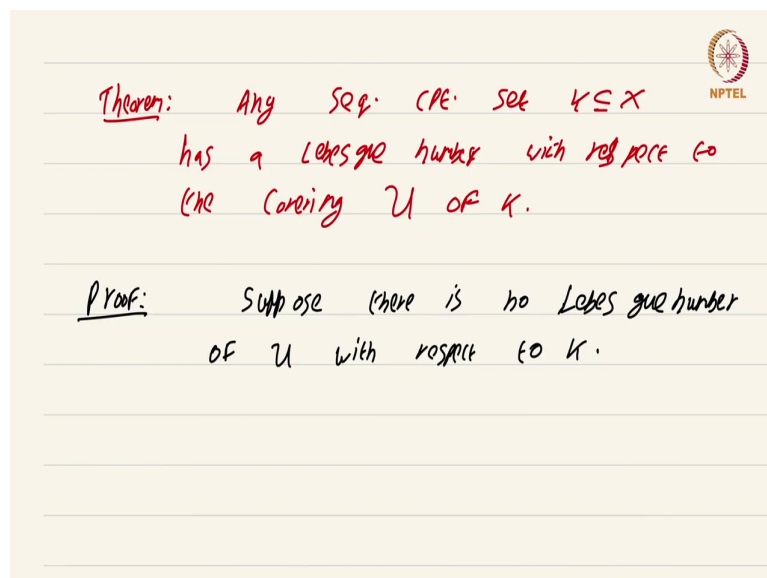 NPTEL
Theorem: Any seq. CPt. set K ⊆ X
has a Lebesgue number with respect to
the covering U of K.
Proof: Suppose there is no Lebesgue number
of U with respect to K.